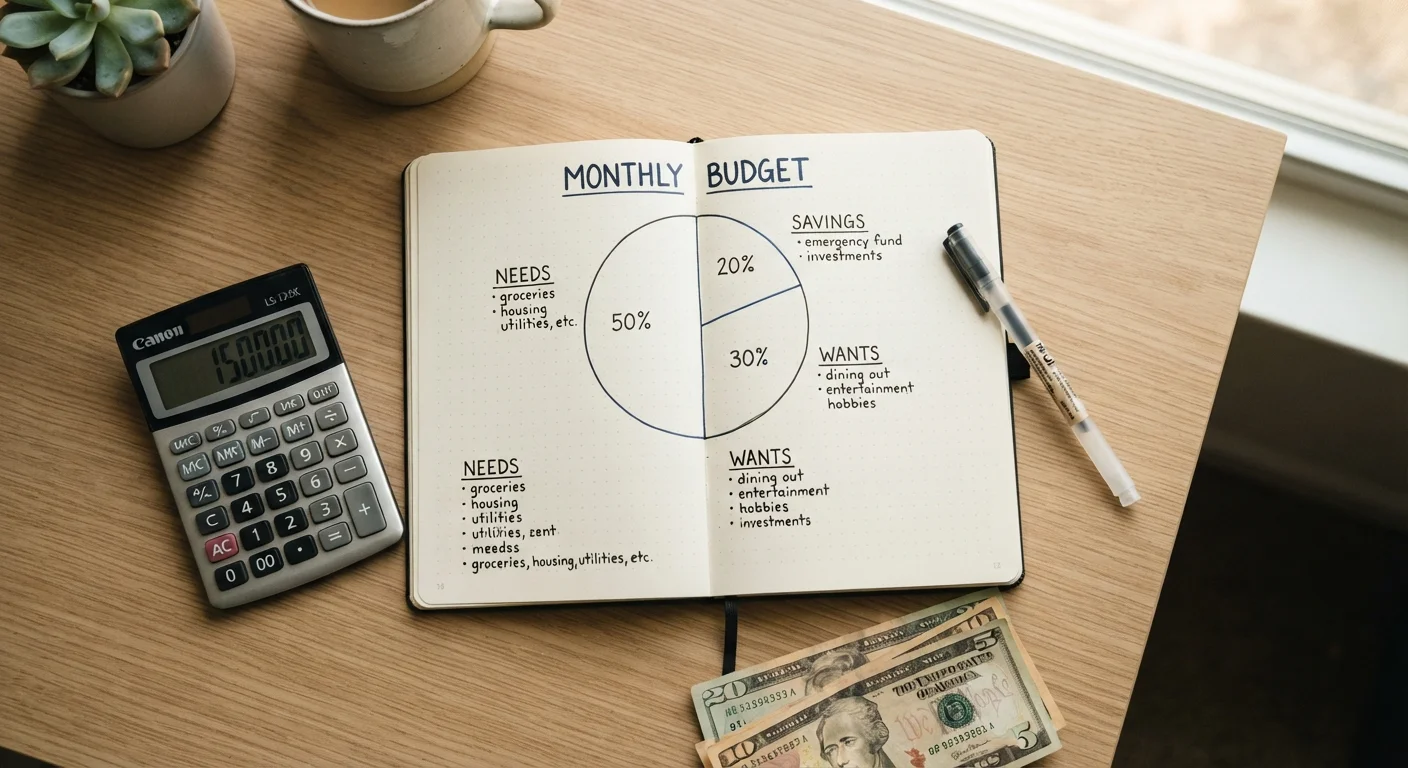 MONTHLY BUDGET
SAVINGS
• emergency fund
• investments
NEEDS
• groceries
• housing
utilities, etc.
50%
20%
30%
WANTS
• dining out
• entertainment
hobbies
NEEDS
• groceries
• housing
• utilities
• utilities, cent
• meedss
• groceries, housing, utilities, etc.
WANTS
• dining out
• entertainment
• hobbies
• investments
Canon
150000
√
÷
M-
M+
×
7
8
9
−
4
5
6
+
C
1
2
3
=
AC
0
00
•
20
10
10
5
5